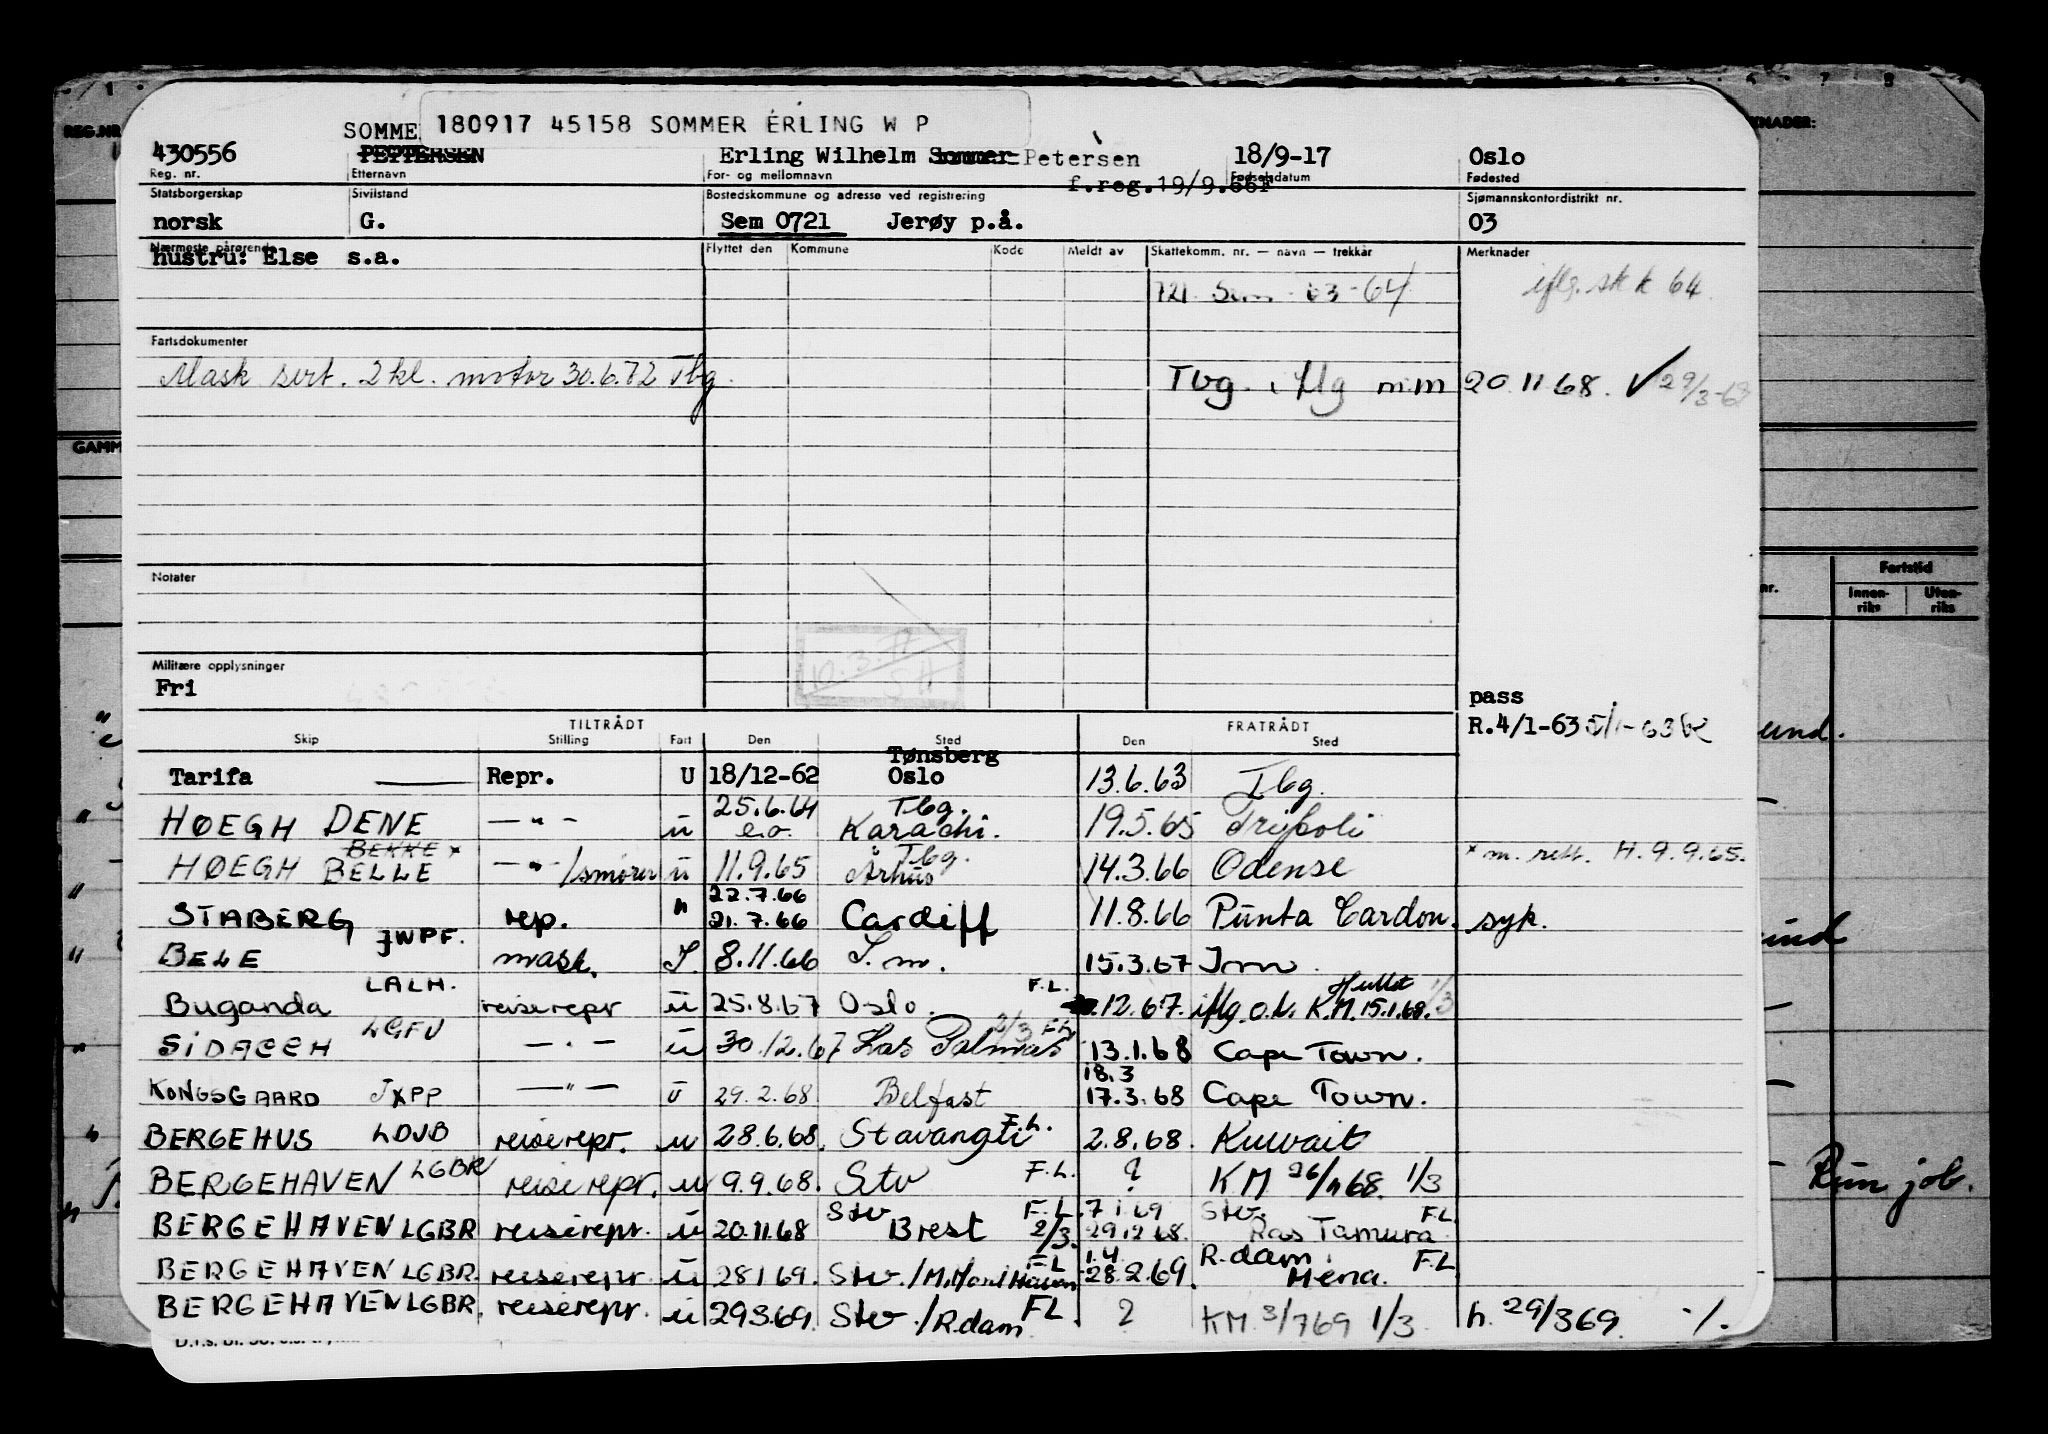 180917 45158 SOMMER ERLING W P
SOMME
430556 PETTERSEN Erling Wilhelm Sommer Petersen 18/9-17 Oslo
Reg. nr. Etternavn For- og mellomnavn Fødselsdatum Fødested
f.reg.19/9.66F
Statsborgerskap Sivilstand Bostedskommune og adresse ved registrering Sjømannskontordistrikt nr.
norsk G. Sem 0721 Jerøy p.å. 03
Nærmeste pårørende Flyttet den Kommune Kode Meldt av Skattekomm. nr. — navn — trekkår Merknader
hustru: Else s.a.
721 Sem 63-64 iflg. skk 64
Fartsdokumenter
Mask sert. 2 kl. motor 30.6.72 Tbg
Tbg. iflg m.m 20 11 68. ✓ 29/3-63
Notater
10.3.71
SH
Militære opplysninger
Fri
pass
R.4/1-63
TILTRÅDT FRATRÅDT
Skip Stilling Fart Den Sted Den Sted
Tønsberg
Tarifa Repr. U 18/12-62 Oslo 13.6.63 Tbg.
25.6.64 Tbg.
HØEGH DENE — " — u e.o. Karachi. 19.5.65 Tripoli
BEKKE x Tbg.
HØEGH BELLE — " — /smører u 11.9.65 Århus 14.3.66 Odense x m. rett. H. 9.9.65.
22.7.66
STABERG rep. " 21.7.66 Cardiff 11.8.66 Punta Cardon. syk.
JWPF.
BELE mask. I. 8.11.66 I.m. 15.3.67 Imm.
LALH. F.L.
Buganda reiserepr u 25.8.67 Oslo. .12.67. iflg. o.k. K.M. 15.1.68. 1/3
LGFU 2/3 FL
SIDACEH — " — u 30.12.67 Las Palmas 13.1.68 Cape Town.
18.3
KONGSGAARD JXPP — " — U 29.2.68 Belfast 17.3.68 Cape Town.
BERGEHUS LDJB reiserepr. u 28.6.68. Stavanger F.L. 2.8.68. Kuwait
BERGEHAVEN LGBR reiserepr. u 9.9.68. Stv F.L. ? KM 26/11 68. 1/3
Stv F.L. 7 1 69 Stv. FL.
BERGEHAVEN LGBR reiserepr. u 20.11.68 Brest 2/3. 29.12.68. Ras Tamura
FL 1.4 R.dam FL
BERGEHAVEN LGBR. reiserepr u 28 1 69. Stv./ 28.2.69. Mena.
BERGEHAVEN LGBR. reiserepr. u 29369. Stv./R.dam FL. ? KM 3/769 1/3 h. 29/369. ./.
REG.NR.
GAMM
KNADER:
Fartstid
nr. Innen-riks Uten-riks
und.
und
Run job.